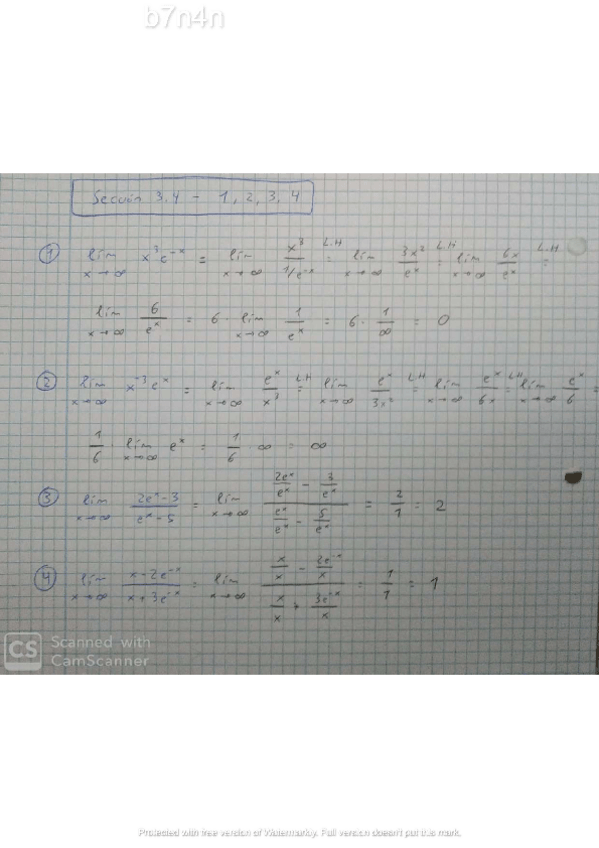 b7n4n
Secuin 3.4 - 1, 2, 3, 4
① lim x→∞ x³e⁻ˣ = lim x→∞ x³/(1/e⁻ˣ) L.H = lim x→∞ 3x²/eˣ L.H = lim x→∞ 6x/eˣ L.H =
lim x→∞ 6/eˣ = 6 · lim x→∞ 1/eˣ = 6 · 1/∞ = 0
② lim x→∞ x⁻³eˣ = lim x→∞ eˣ/x³ L.H = lim x→∞ eˣ/3x² L.H = lim x→∞ eˣ/6x L.H = lim x→∞ eˣ/6 =
1/6 · lim x→∞ eˣ = 1/6 · ∞ = ∞
③ lim x→∞ (2eˣ-3)/(eˣ-5) = lim x→∞ (2eˣ/eˣ - 3/eˣ)/(eˣ/eˣ - 5/eˣ) = 2/1 = 2
④ lim x→∞ (x-2e⁻ˣ)/(x+3e⁻ˣ) = lim x→∞ (x/x - 2e⁻ˣ/x)/(x/x + 3e⁻ˣ/x) = 1/1 = 1
CS Scanned with
CamScanner
Protected with free version of Watermarkly. Full version doesn't put this mark.